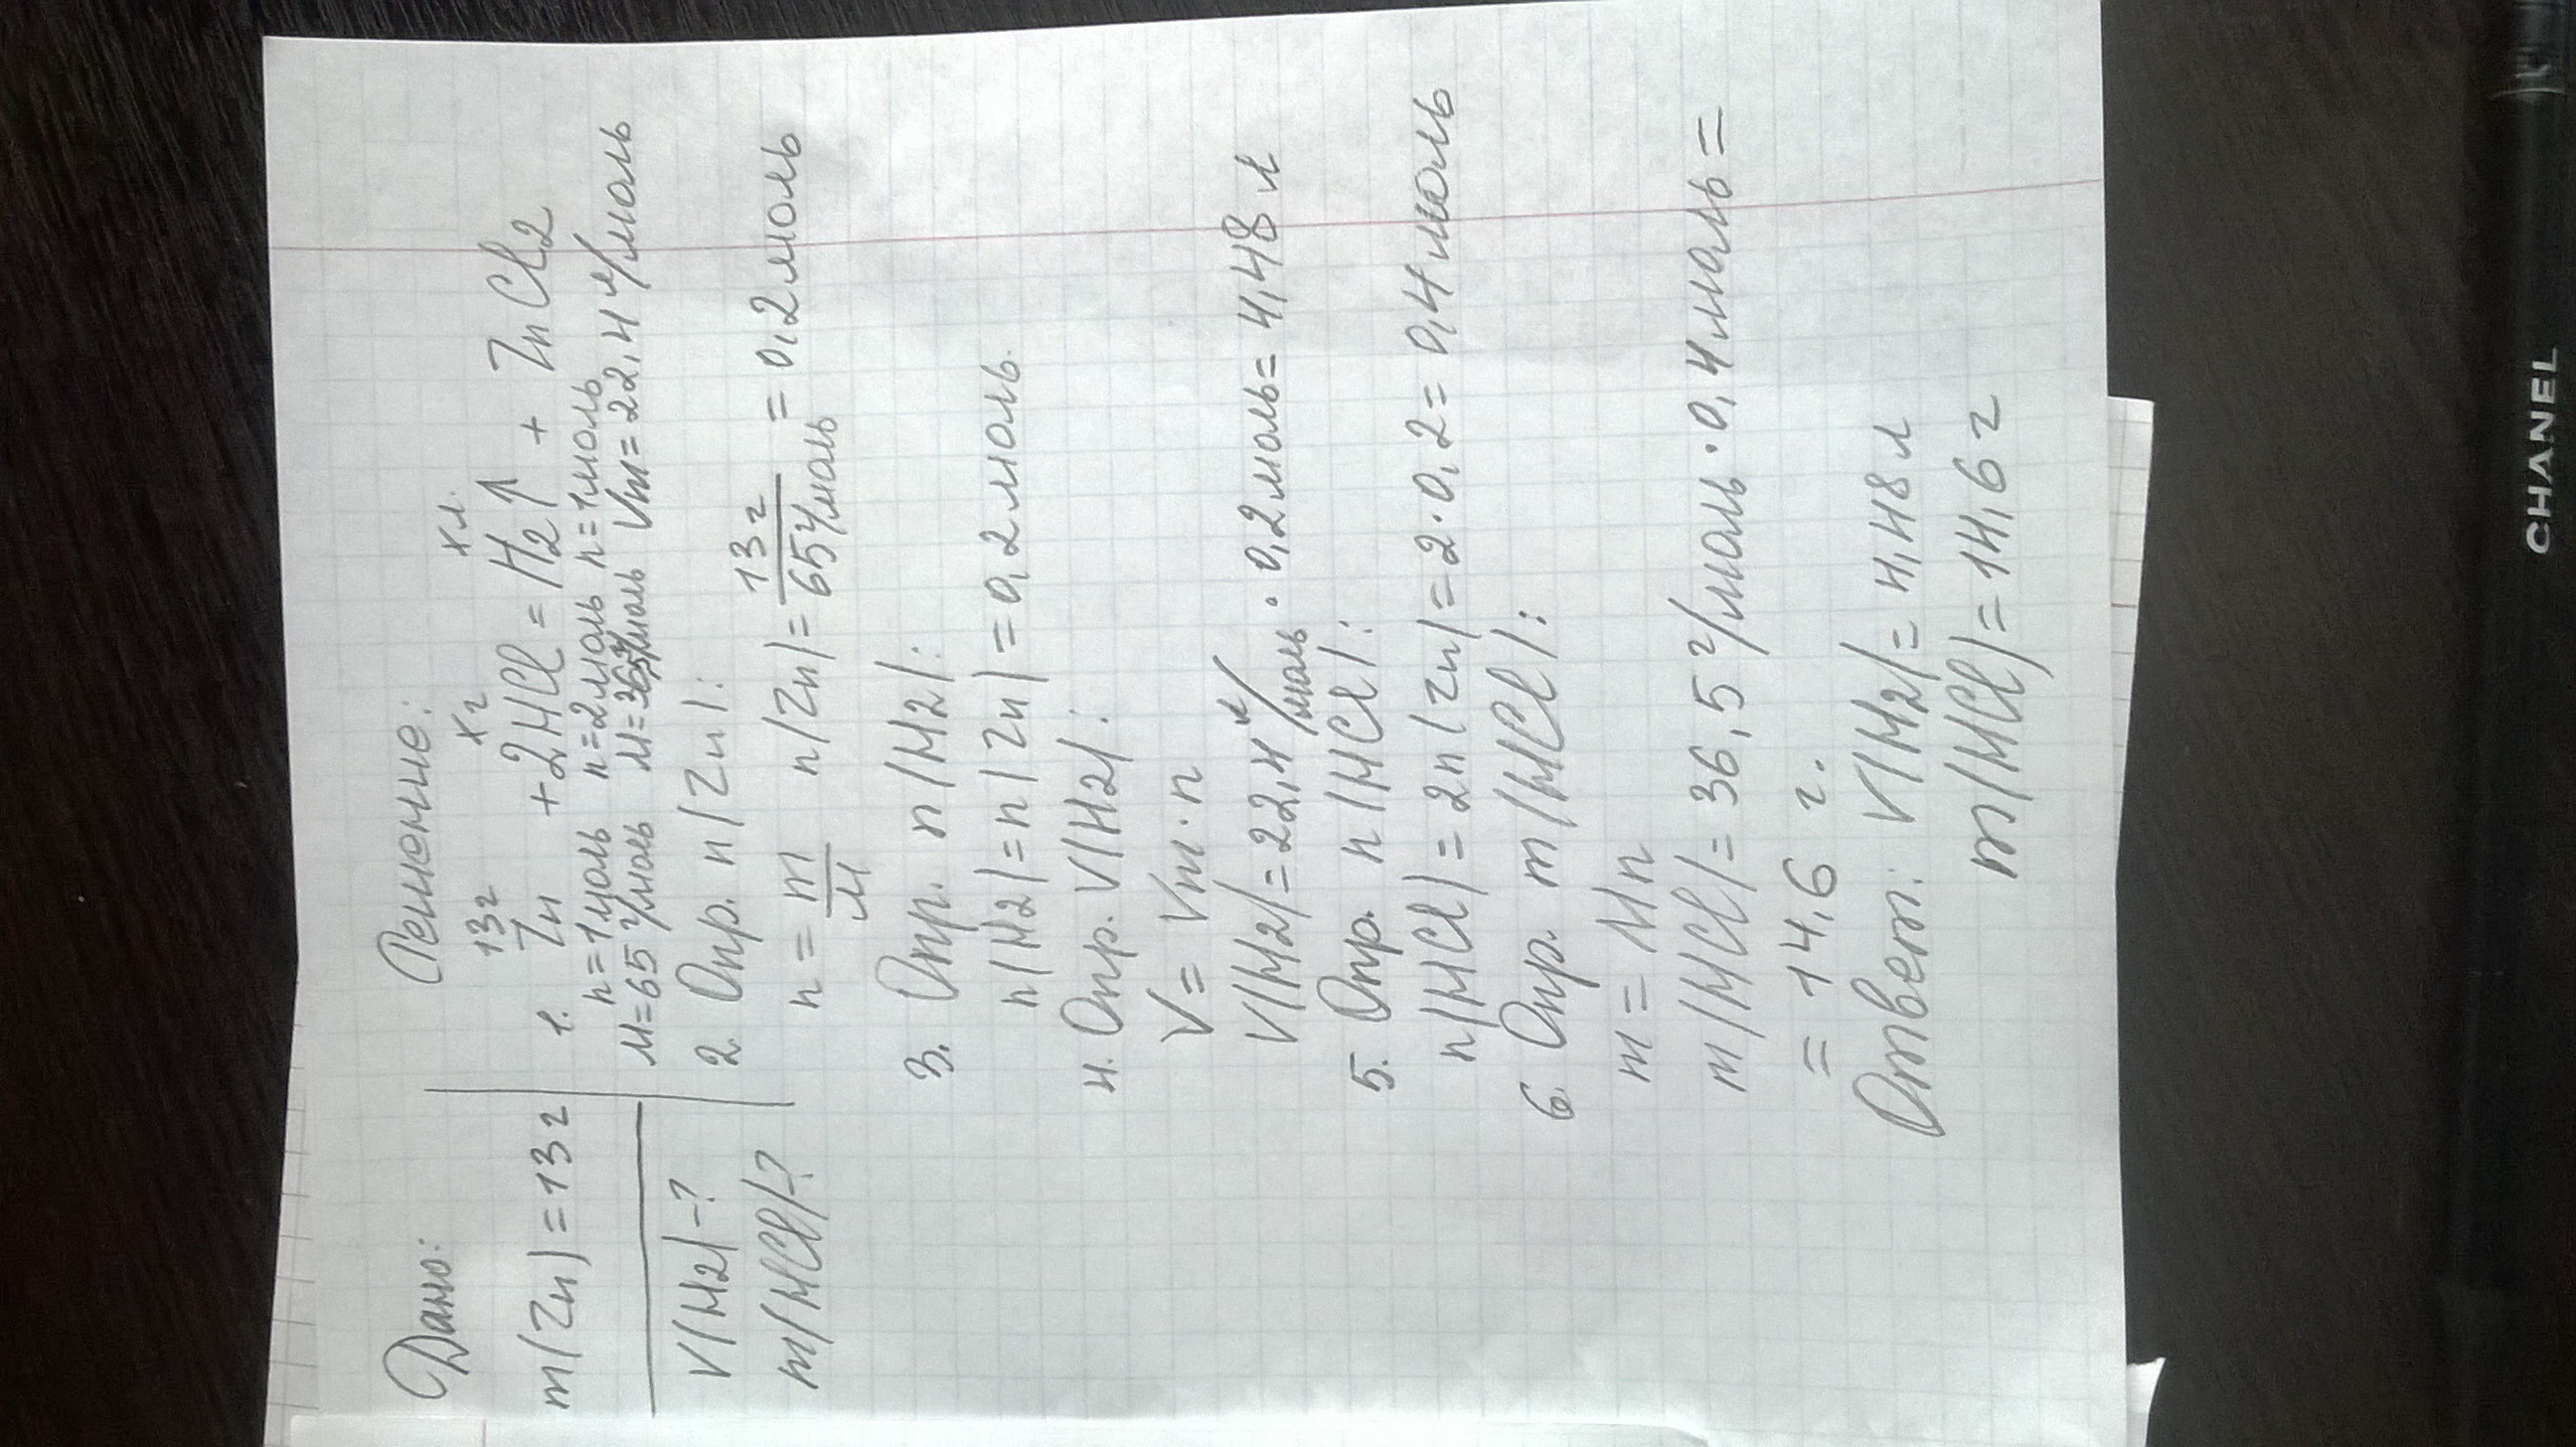 Дано:
m(Zn)=13г
V(H2)-?
m(HCl)-?
Решение:
13г хг хл.
1. Zn + 2HCl = H2↑ + ZnCl2
n=1моль n=2моль n=1моль
M=65г/моль M=36,5г/моль Vm=22,4л/моль
2. Опр. n(Zn):
n = m/M n(Zn) = 13г/65г/моль = 0,2моль
3. Опр. n(H2):
n(H2)=n(Zn)=0,2моль.
4. Опр. V(H2):
V= Vm·n
V(H2)=22,4л/моль·0,2моль=4,48л
5. Опр. n(HCl):
n(HCl)=2n(Zn)=2·0,2=0,4моль
6. Опр. m(HCl):
m= Mn
m(HCl)=36,5г/моль·0,4моль=
= 14,6 г.
Ответ: V(H2)=4,48л
m(HCl)=14,6г
CHANEL